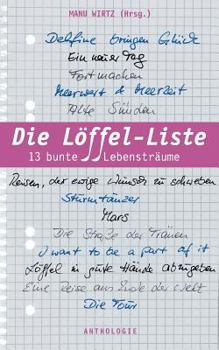 MANU WIRTZ (Hrsg.)
Delfine bringen Glück
Ein neuer Tag
Fortmachen
Meerwert & Meerzeit
Alte Sünden
Die Löffel-Liste
13 bunte Lebensträume
Reisen, der ewige Wunsch zu schweben
Sturmtänzer
Mars
Die Straße der Tränen
I want to be a part of it
Löffel in gute Hände abzugeben
Eine Reise ans Ende der Welt
Die Tour
ANTHOLOGIE